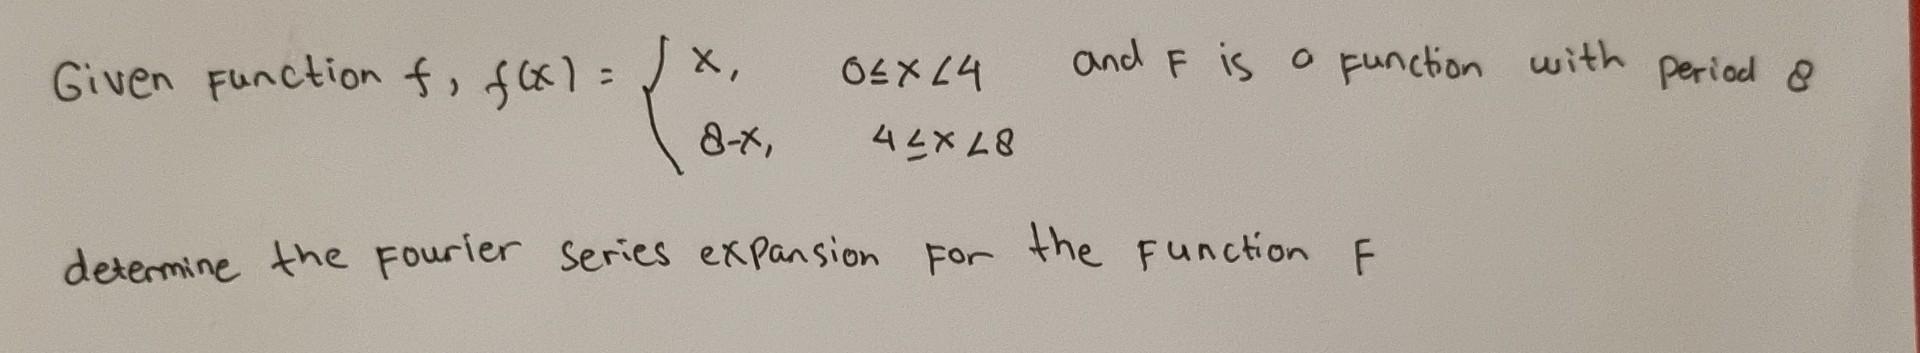 Given Function f, f(x) = { x, 0≤x<4 and F is a function with period 8
8-x, 4≤x<8
determine the Fourier series expansion For the Function F